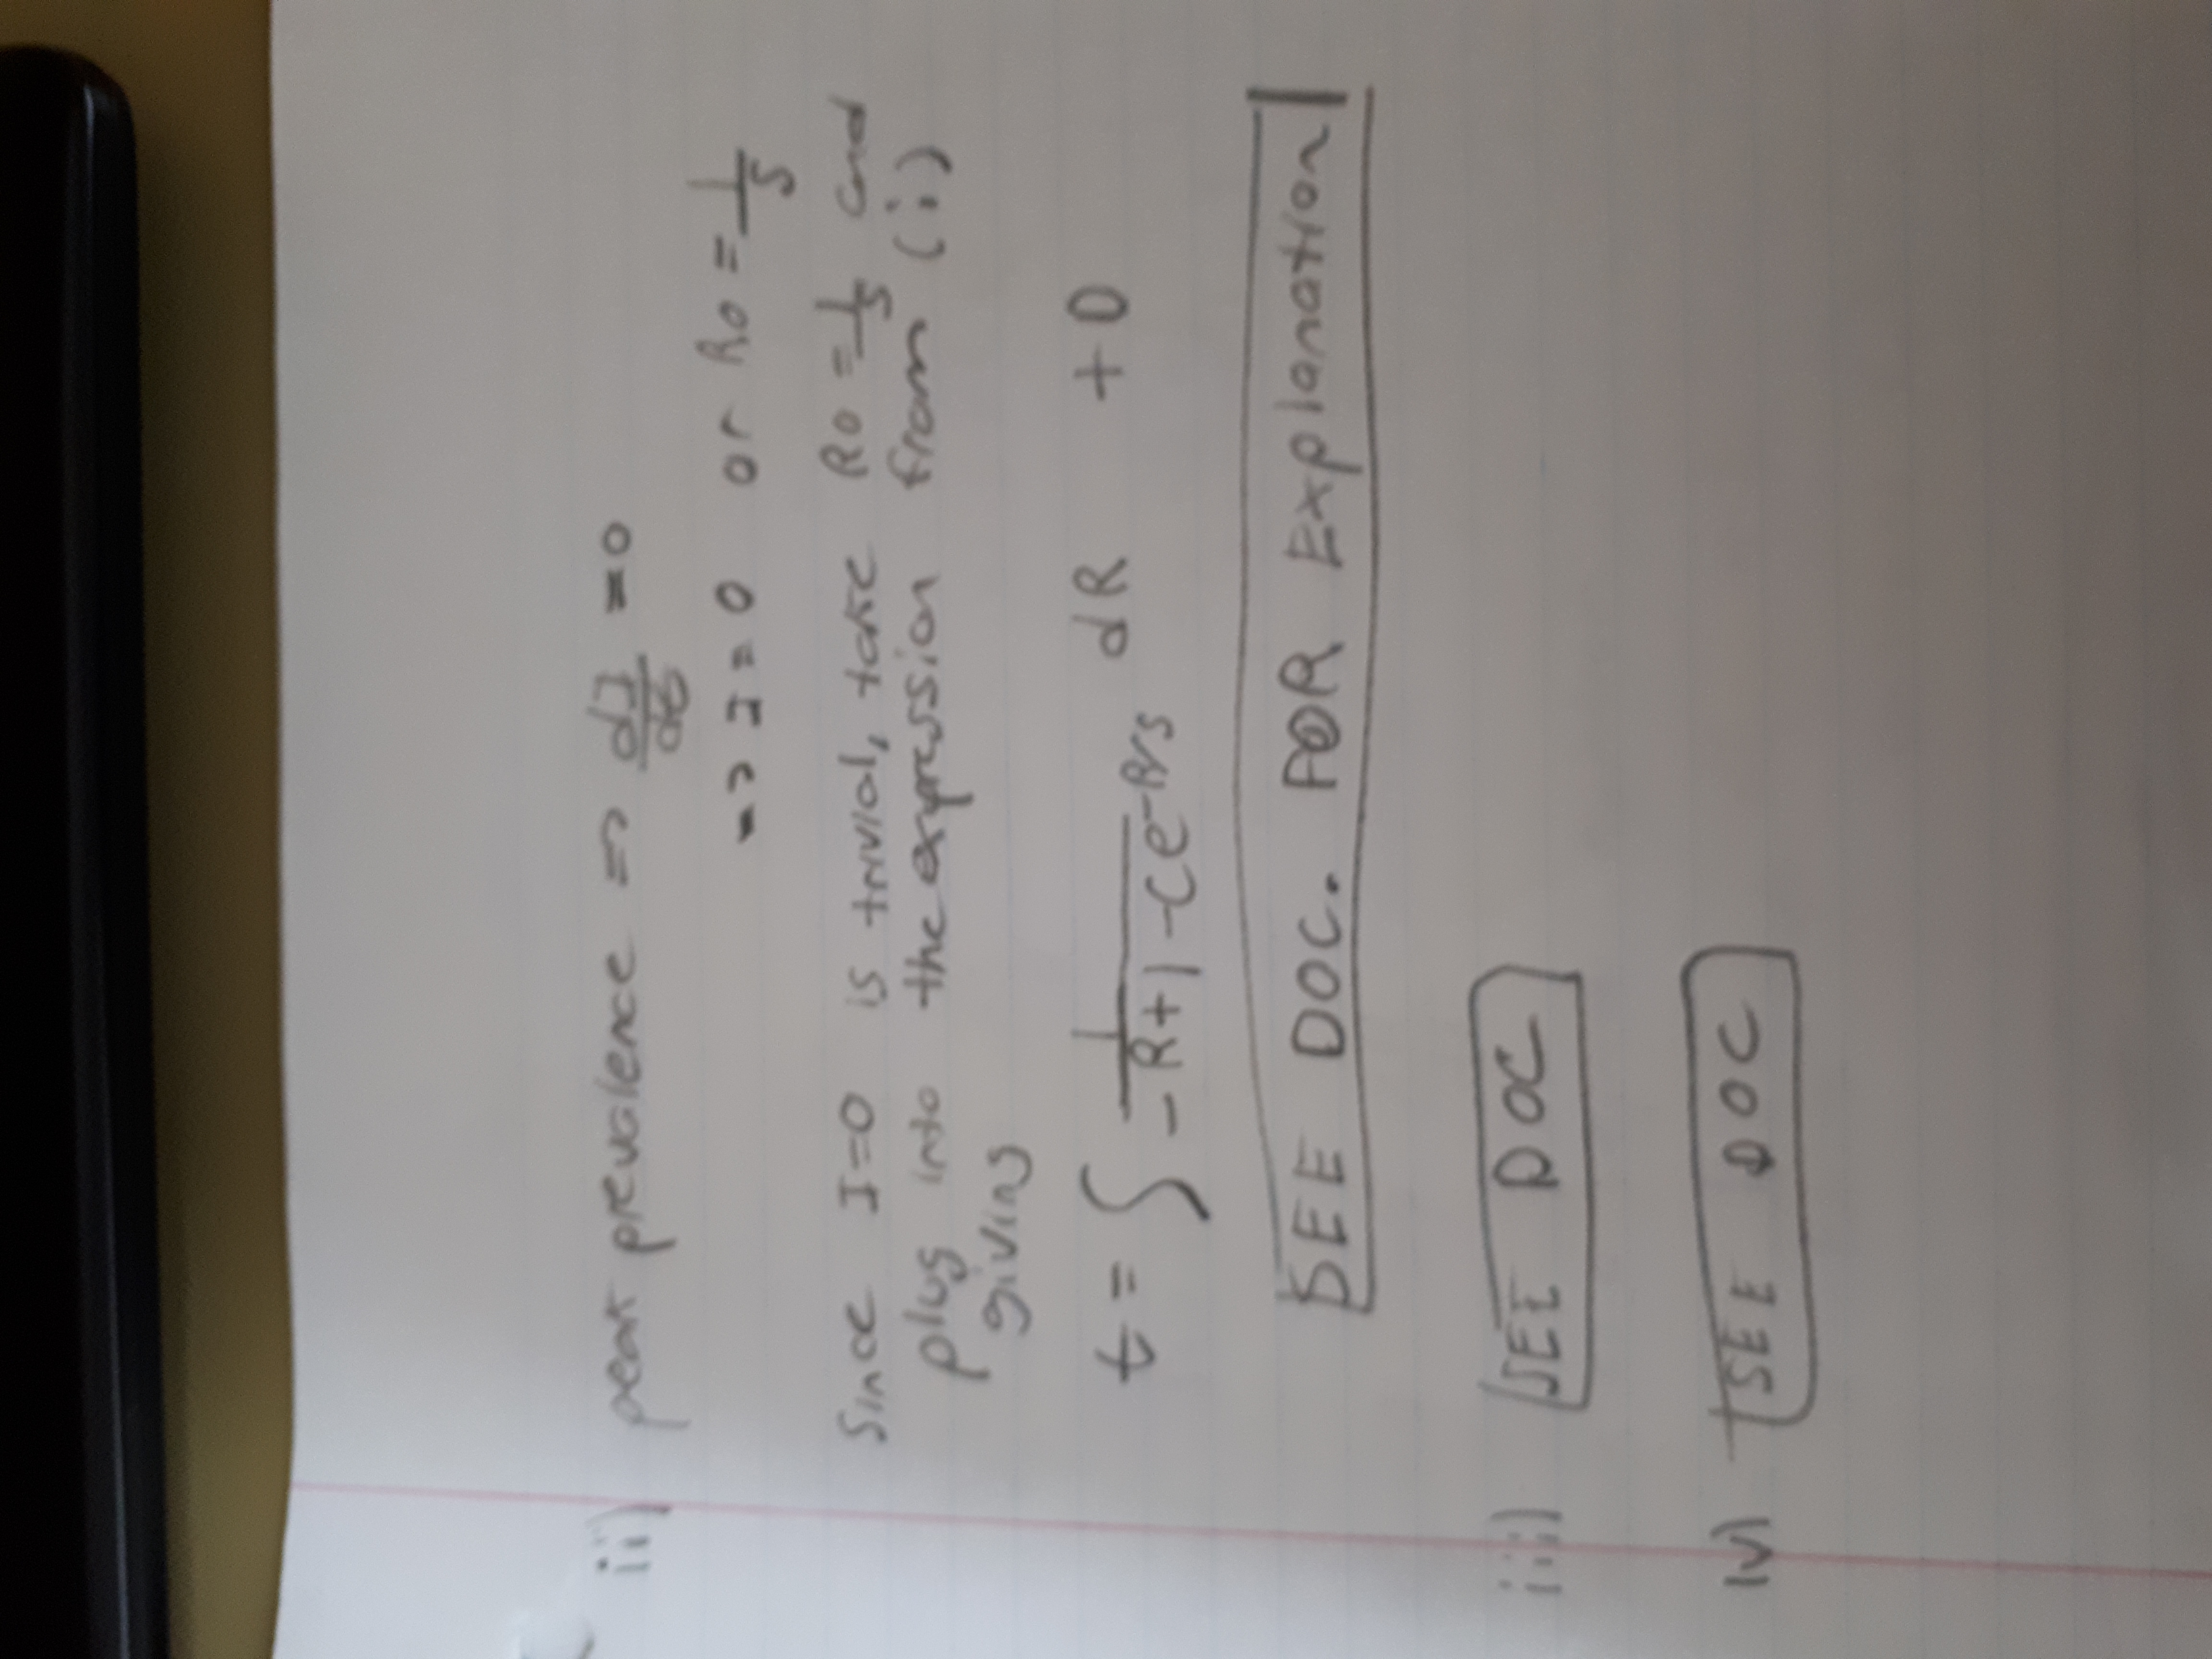 ii) peak prevalence => dI/dt = 0
=> I = 0 or Ro = 1/S
Since I=0 is trivial, take Ro = 1/S and
plug into the expression from (i)
giving
t = ∫ 1/(-R+1-Ce^(-R/S)) dR + D
SEE DOC. FOR Explanation
iii) SEE DOC
iv) SEE DOC